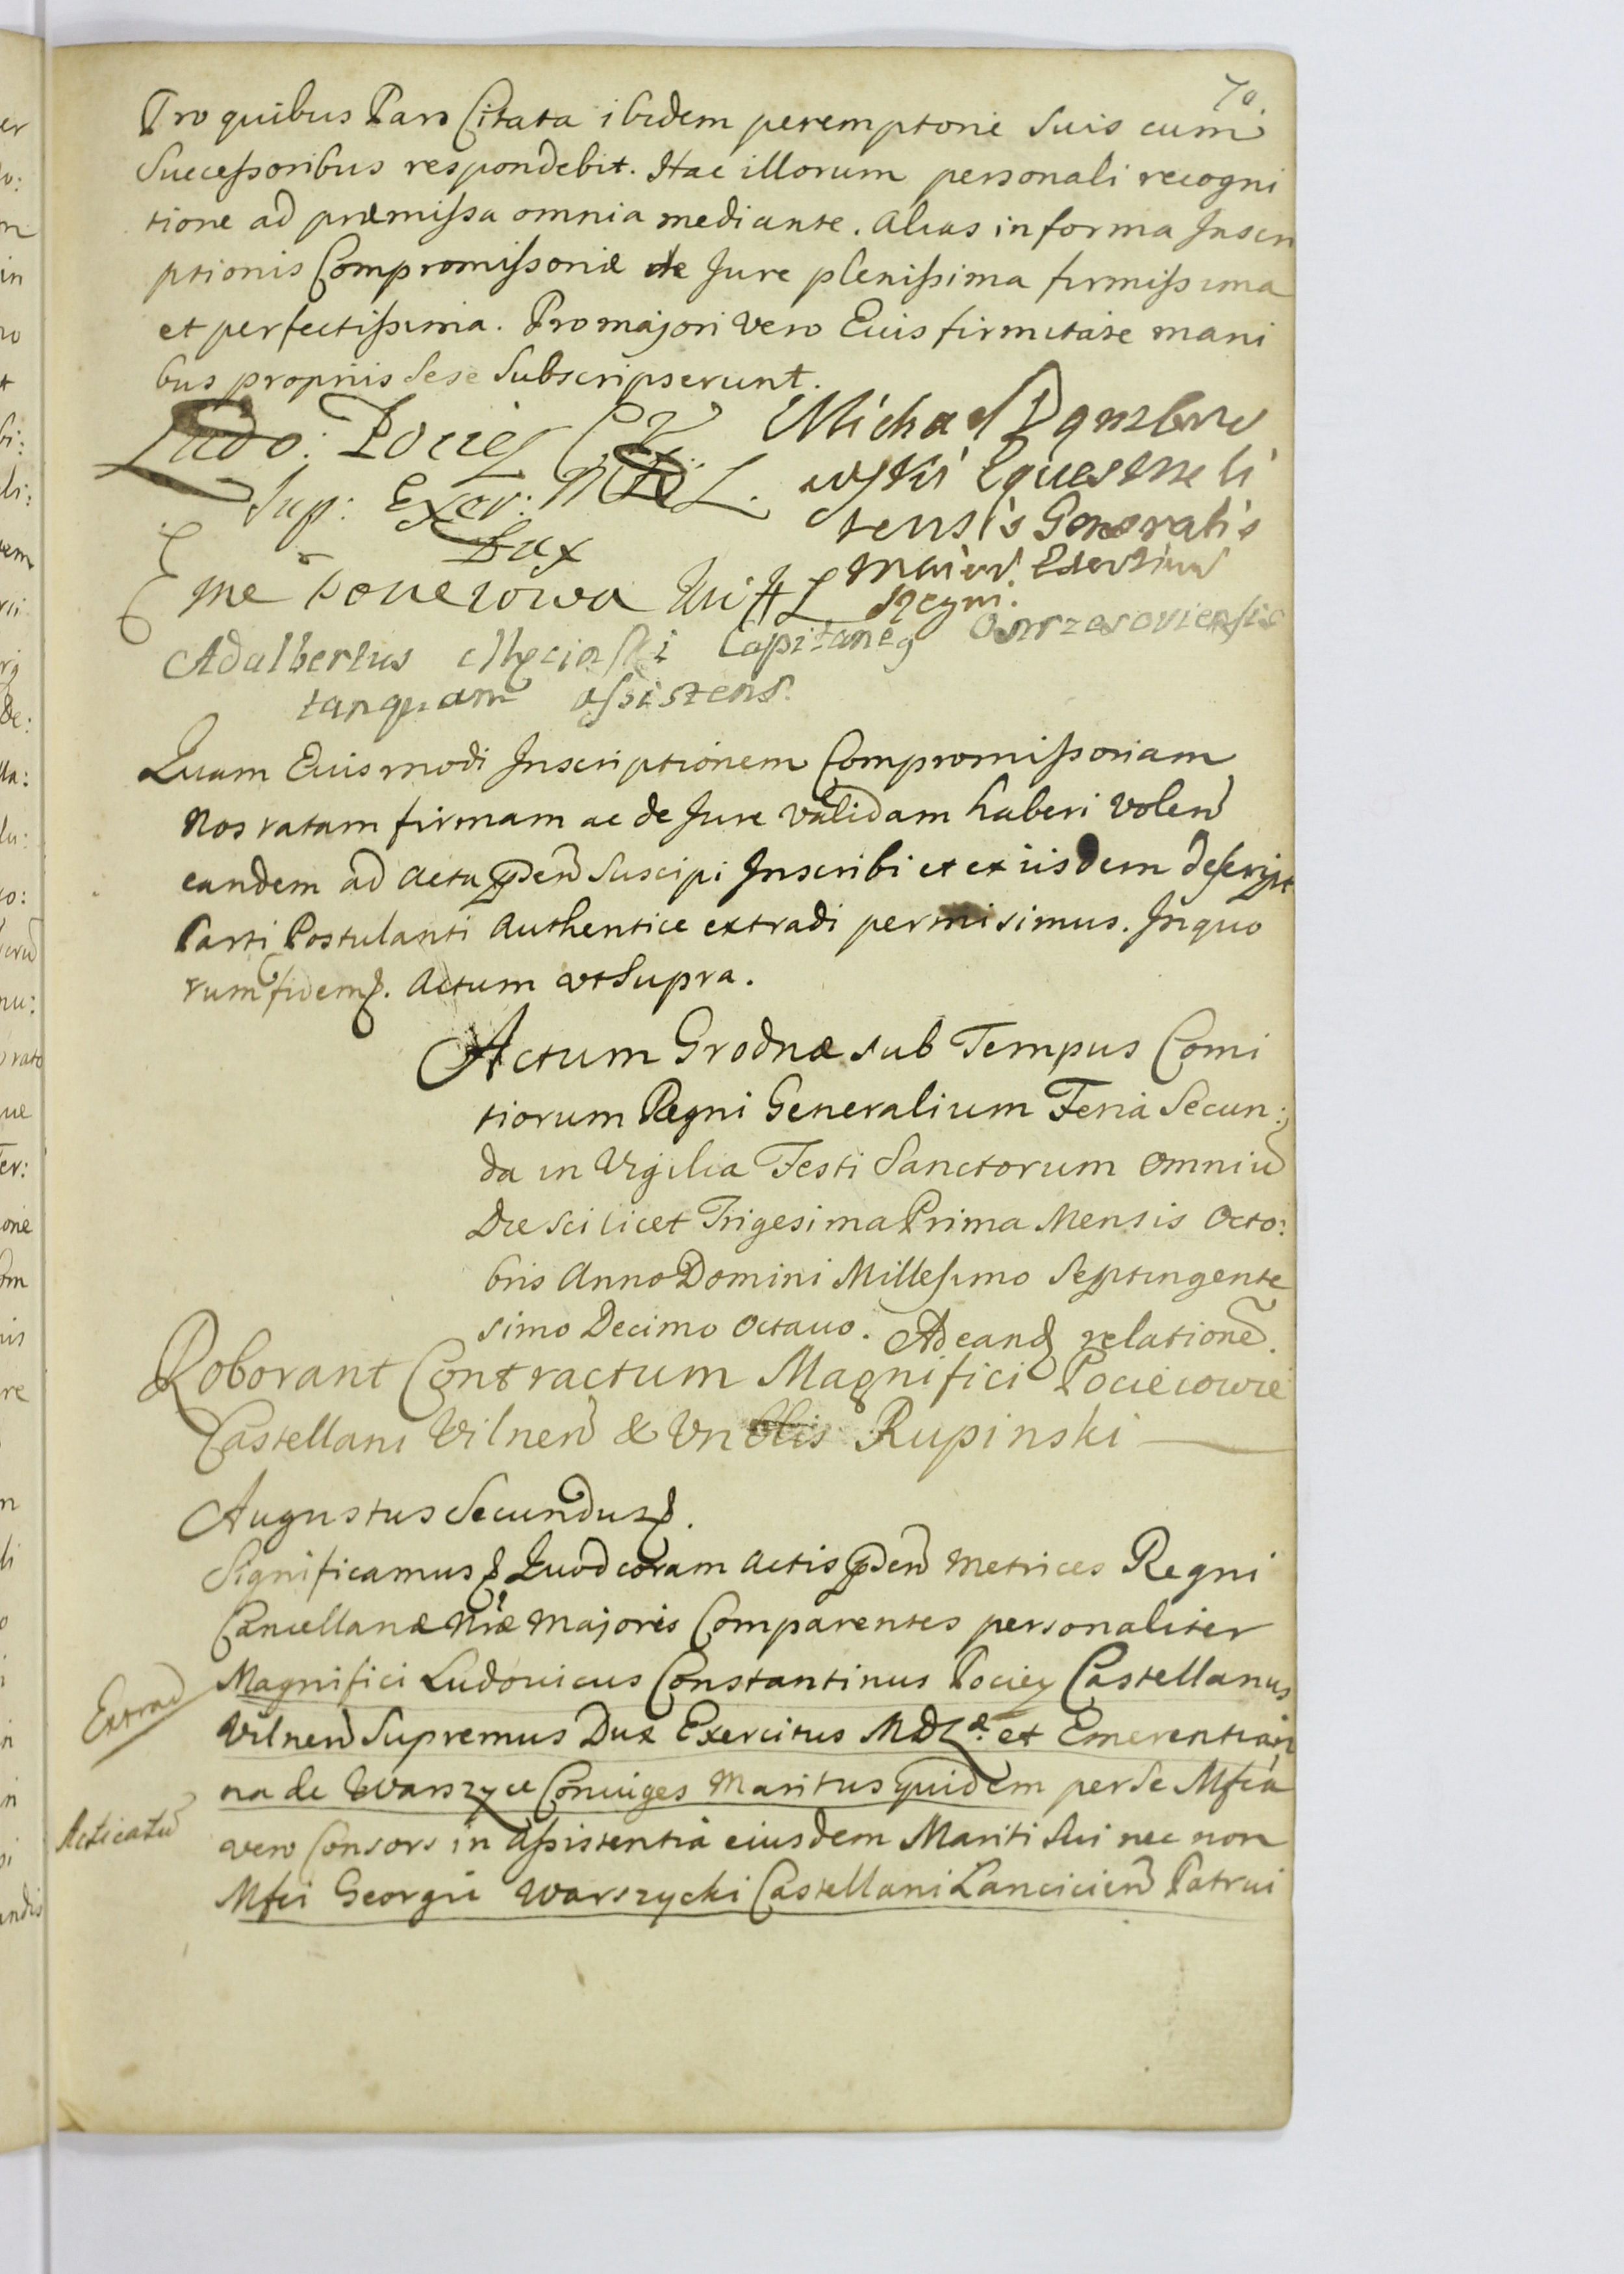 70.
Pro quibus Pars Citata ibidem peremptorie suis cum
Successoribus respondebit. Hac illorum personali recogni
tione ad præmissa omnia mediante. Alias in forma Inscri
ptionis Compromissoriæ de Jure plenissima firmissima
et perfectissima. Pro majori vero Eius firmitate mani
bus proprijs sese Subscripserunt.
Ludo: Pociey C. V.
Sup: Exer: M D L.
Dux
Michael Dąmbro
wski Equestris li
tensis Generalis
maior. Exercituu
Regni.
Eme Pocieiowa
Adalbertus Męciński Capitaneg Ostrzesoviensis
tanquam assistens.
Quam Eiusmodi Inscriptionem Compromissoriam
Nos ratam firmam ac de Jure validam haberi volen
eandem ad Acta pden suscipi Inscribi et ex iisdem descript
Parti Postulanti Authentice extradi permisimus. In quo
rum fidem. Actum ut Supra.
Actum Grodnæ sub Tempus Comi
tiorum Regni Generalium Feria Secun:
da in Vigilia Festi Sanctorum Omniu
Die scilicet Trigesima Prima Mensis Octo:
bris Anno Domini Millesimo Septingente
simo Decimo Octauo. Ad eand relatione.
Roborant Contractum Magnifici Pocieiowie
Castellani Vilnen & Rupinski
Augustus Secundus.
Significamus Quod coram Actis pden Metrices Regni
Cancellariæ Nræ Majoris Comparentes personaliter
Extrad
Magnifici Ludouicus Constantinus Pociey Castellanus
Vilnen Supremus Dux Exercitus M D L. et Emerentian
na de Warszyce Coniuges Maritus quidem per se Mfca
Acticatu
vero Consors in Assistentia eiusdem Mariti sui nec non
Mfci Georgii Warszycki Castellani Lancicien Patrui